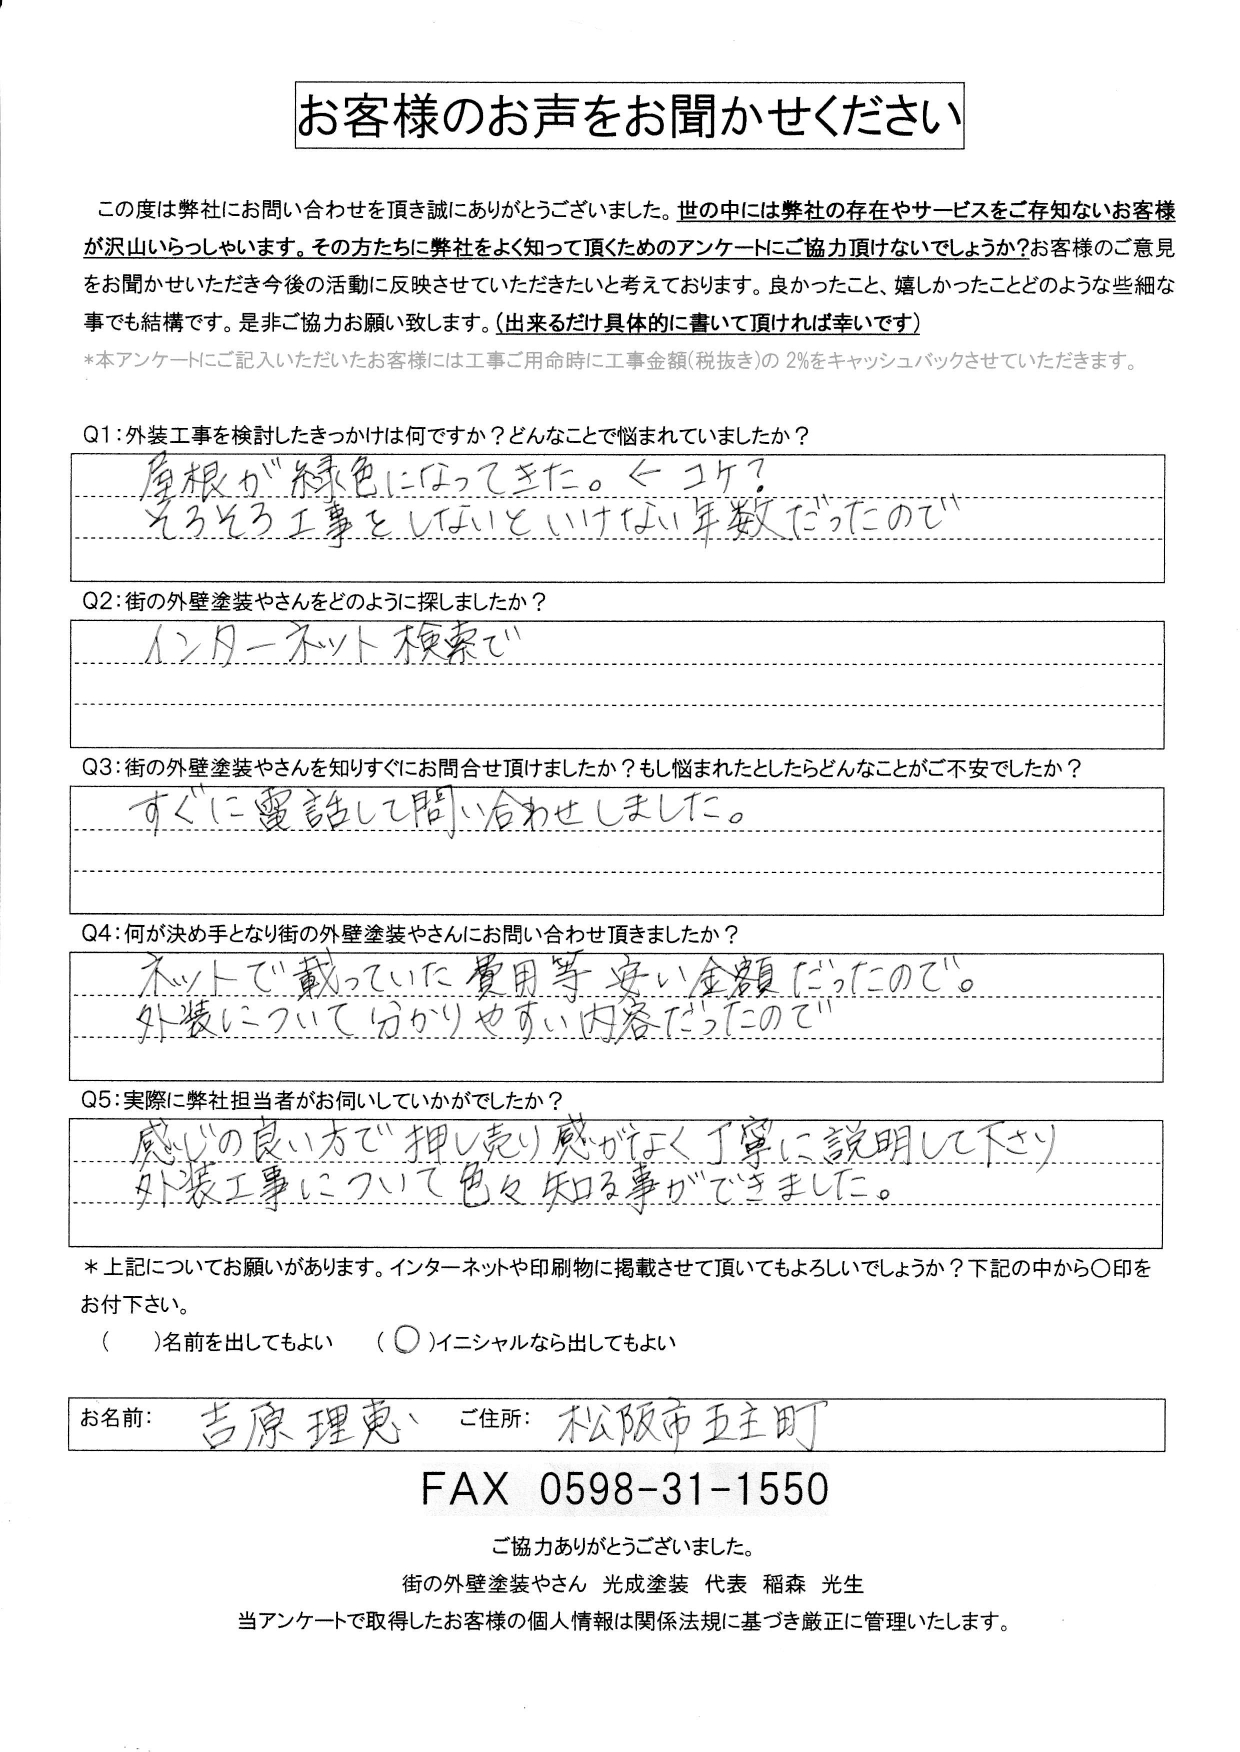 お客様のお声をお聞かせください
この度は弊社にお問い合わせを頂き誠にありがとうございました。世の中には弊社の存在やサービスをご存知ないお客様
が沢山いらっしゃいます。その方たちに弊社をよく知って頂くためのアンケートにご協力頂けないでしょうか?お客様のご意見
をお聞かせいただき今後の活動に反映させていただきたいと考えております。良かったこと、嬉しかったことどのような些細な
事でも結構です。是非ご協力お願い致します。(出来るだけ具体的に書いて頂ければ幸いです)
*本アンケートにご記入いただいたお客様には工事ご用命時に工事金額(税抜き)の 2%をキャッシュバックさせていただきます。
Q1:外装工事を検討したきっかけは何ですか?どんなことで悩まれていましたか?
屋根が緑色になってきた。← コケ?
そろそろ工事をしないといけない年数だったので
Q2:街の外壁塗装やさんをどのように探しましたか?
インターネット検索で
Q3:街の外壁塗装やさんを知りすぐにお問合せ頂けましたか?もし悩まれたとしたらどんなことがご不安でしたか?
すぐに電話して問い合わせしました。
Q4:何が決め手となり街の外壁塗装やさんにお問い合わせ頂きましたか?
ネットで載っていた費用等安い金額だったので。
外装について分かりやすい内容だったので
Q5:実際に弊社担当者がお伺いしていかがでしたか?
感じの良い方で押し売り感がなく丁寧に説明して下さり
外装工事について色々知る事ができました。
*上記についてお願いがあります。インターネットや印刷物に掲載させて頂いてもよろしいでしょうか?下記の中から〇印を
お付下さい。
( )名前を出してもよい (〇)イニシャルなら出してもよい
お名前: 吉原理恵 ご住所: 松阪市五主町
FAX 0598-31-1550
ご協力ありがとうございました。
街の外壁塗装やさん 光成塗装 代表 稲森 光生
当アンケートで取得したお客様の個人情報は関係法規に基づき厳正に管理いたします。